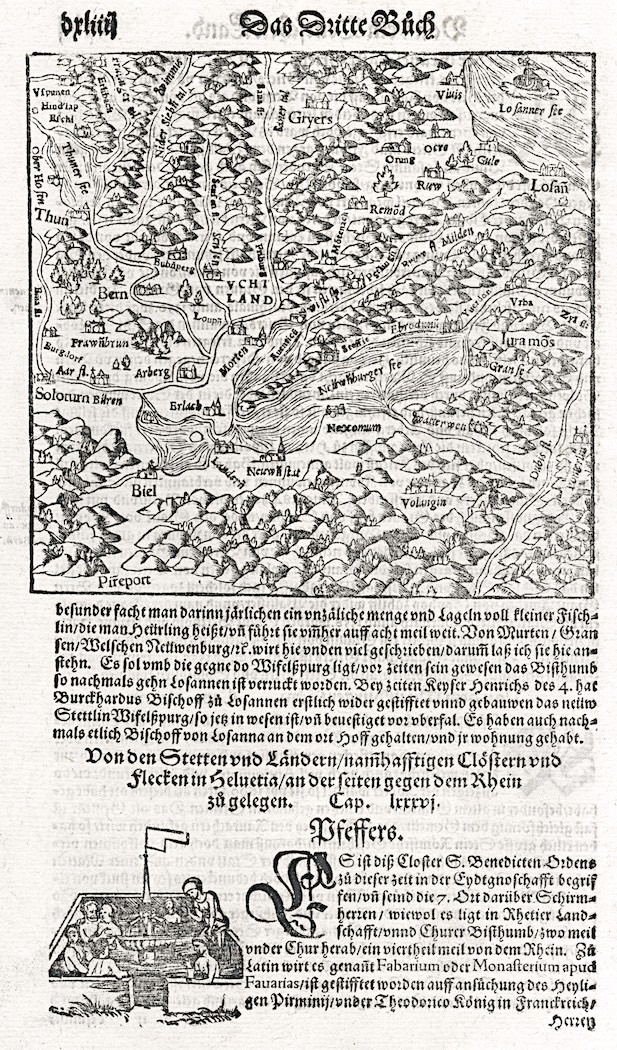 dxliiij
Das Dritte Bůch
Vspunen
Hindlap
Eschi
Thuner see
Ober Hofen
Thun
Nider Sibental
Gryers
Viuis
Losanner see
Oero
Orung
Gule
Ruw
Losañ
Remōd
Milden
Bern
VCHT
LAND
Loupñ
Frawñbrun
Burgdorf
Aar fl.
Arberg
Morten
Wiflspurg
Ebrodunū
Vrba
Iura mōs
Granse
Soloturn
Büren
Erlach
Neuwñburger see
Nexcomum
Neuwñstat
Biel
Volangin
Pirreport
besunder facht man darinn järlichen ein vnzäliche menge vnd Lageln voll kleiner Fisch⸗
lin/die man Heürling heißt/vñ führt sie vm̃her auff acht meil weit. Von Murten/Gran
sen/Welschen Neüwenburg/ꝛc. wirt hie vnden viel geschrieben/darum̃ laß ich sie hie an⸗
stehn. Es sol vmb die gegne do Wifelßpurg ligt/vor zeiten sein gewesen das Bisthumb
so nachmals gehn Losannen ist verruckt worden. Bey zeiten Keyser Henrichs des 4. hat
Burckhardus Bischoff zů Losannen erstlich wider gestifftet vnnd gebauwen das neüw
Stettlin Wifelßpurg/so jetz in wesen ist/vñ beuestiget vor vberfal. Es haben auch nach⸗
mals etlich Bischoff von Losanna an dem ort Hoff gehalten/vnd jr wohnung gehabt.
Von den Stetten vnd Ländern/nam̃hafftigen Clöstern vnd
Flecken in Heluetia/an der seiten gegen dem Rhein
zů gelegen. Cap. lxxxvj.
Pfeffers.
ES ist diß Closter S. Benedicten Ordens
zů dieser zeit in der Eydtgnoschafft begrif
fen/vñ seind die 7. Ort darüber Schirm⸗
herren/wiewol es ligt in Rhetier Land⸗
schafft/vnnd Churer Bisthumb/zwo meil
vnder Chur herab/ein viertheil meil von dem Rhein. Zů
Latin wirt es genañt Fabarium oder Monasterium apud
Fauarias/ist gestifftet worden auff ansůchung des Heyli⸗
gen Pirminij/vnder Theodorico König in Franckreich/
Herren